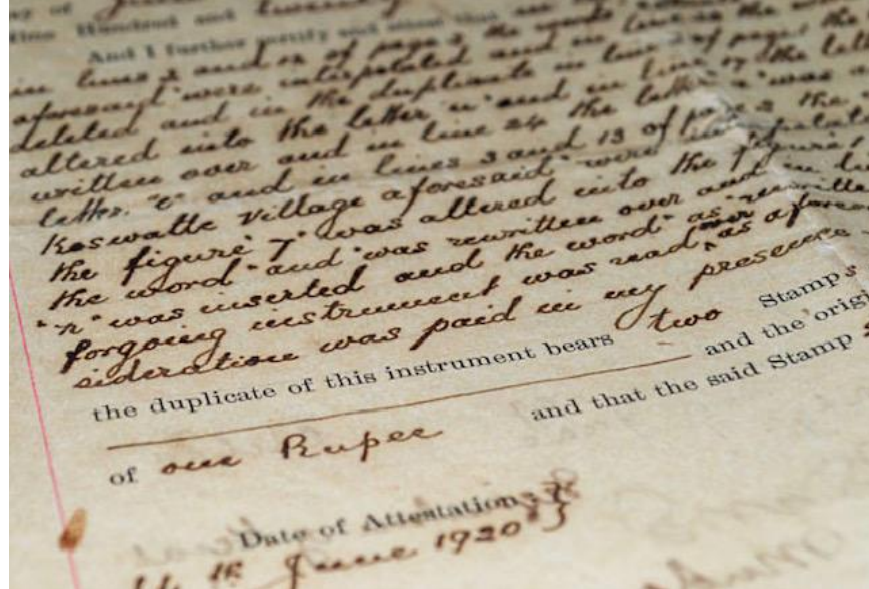 ine Hundred and twenty
And I further certify and attest that
in lines 2 and 12 of page 2 the words in line the word
aforesaid" were interpolated and in line
deleted and in the duplicate in line 2 of page 1 the
altered into the letter "n" and in line 17 the lett
written over and in line 24 the letter "n" was a
letter "e" and in lines 3 and 13 of page 2 the
Koswatte Village aforesaid" were interpolate
the figure "7" was altered into the figure
the word "and" was rewritten over and in li
"r" was inserted and the word "as" rewritte
forgoing instrument was read over as afores
sideration was paid in my presence
the duplicate of this instrument bears two Stamps
and the origi
of one Rupee and that the said Stamp
Date of Attestation
June 1920